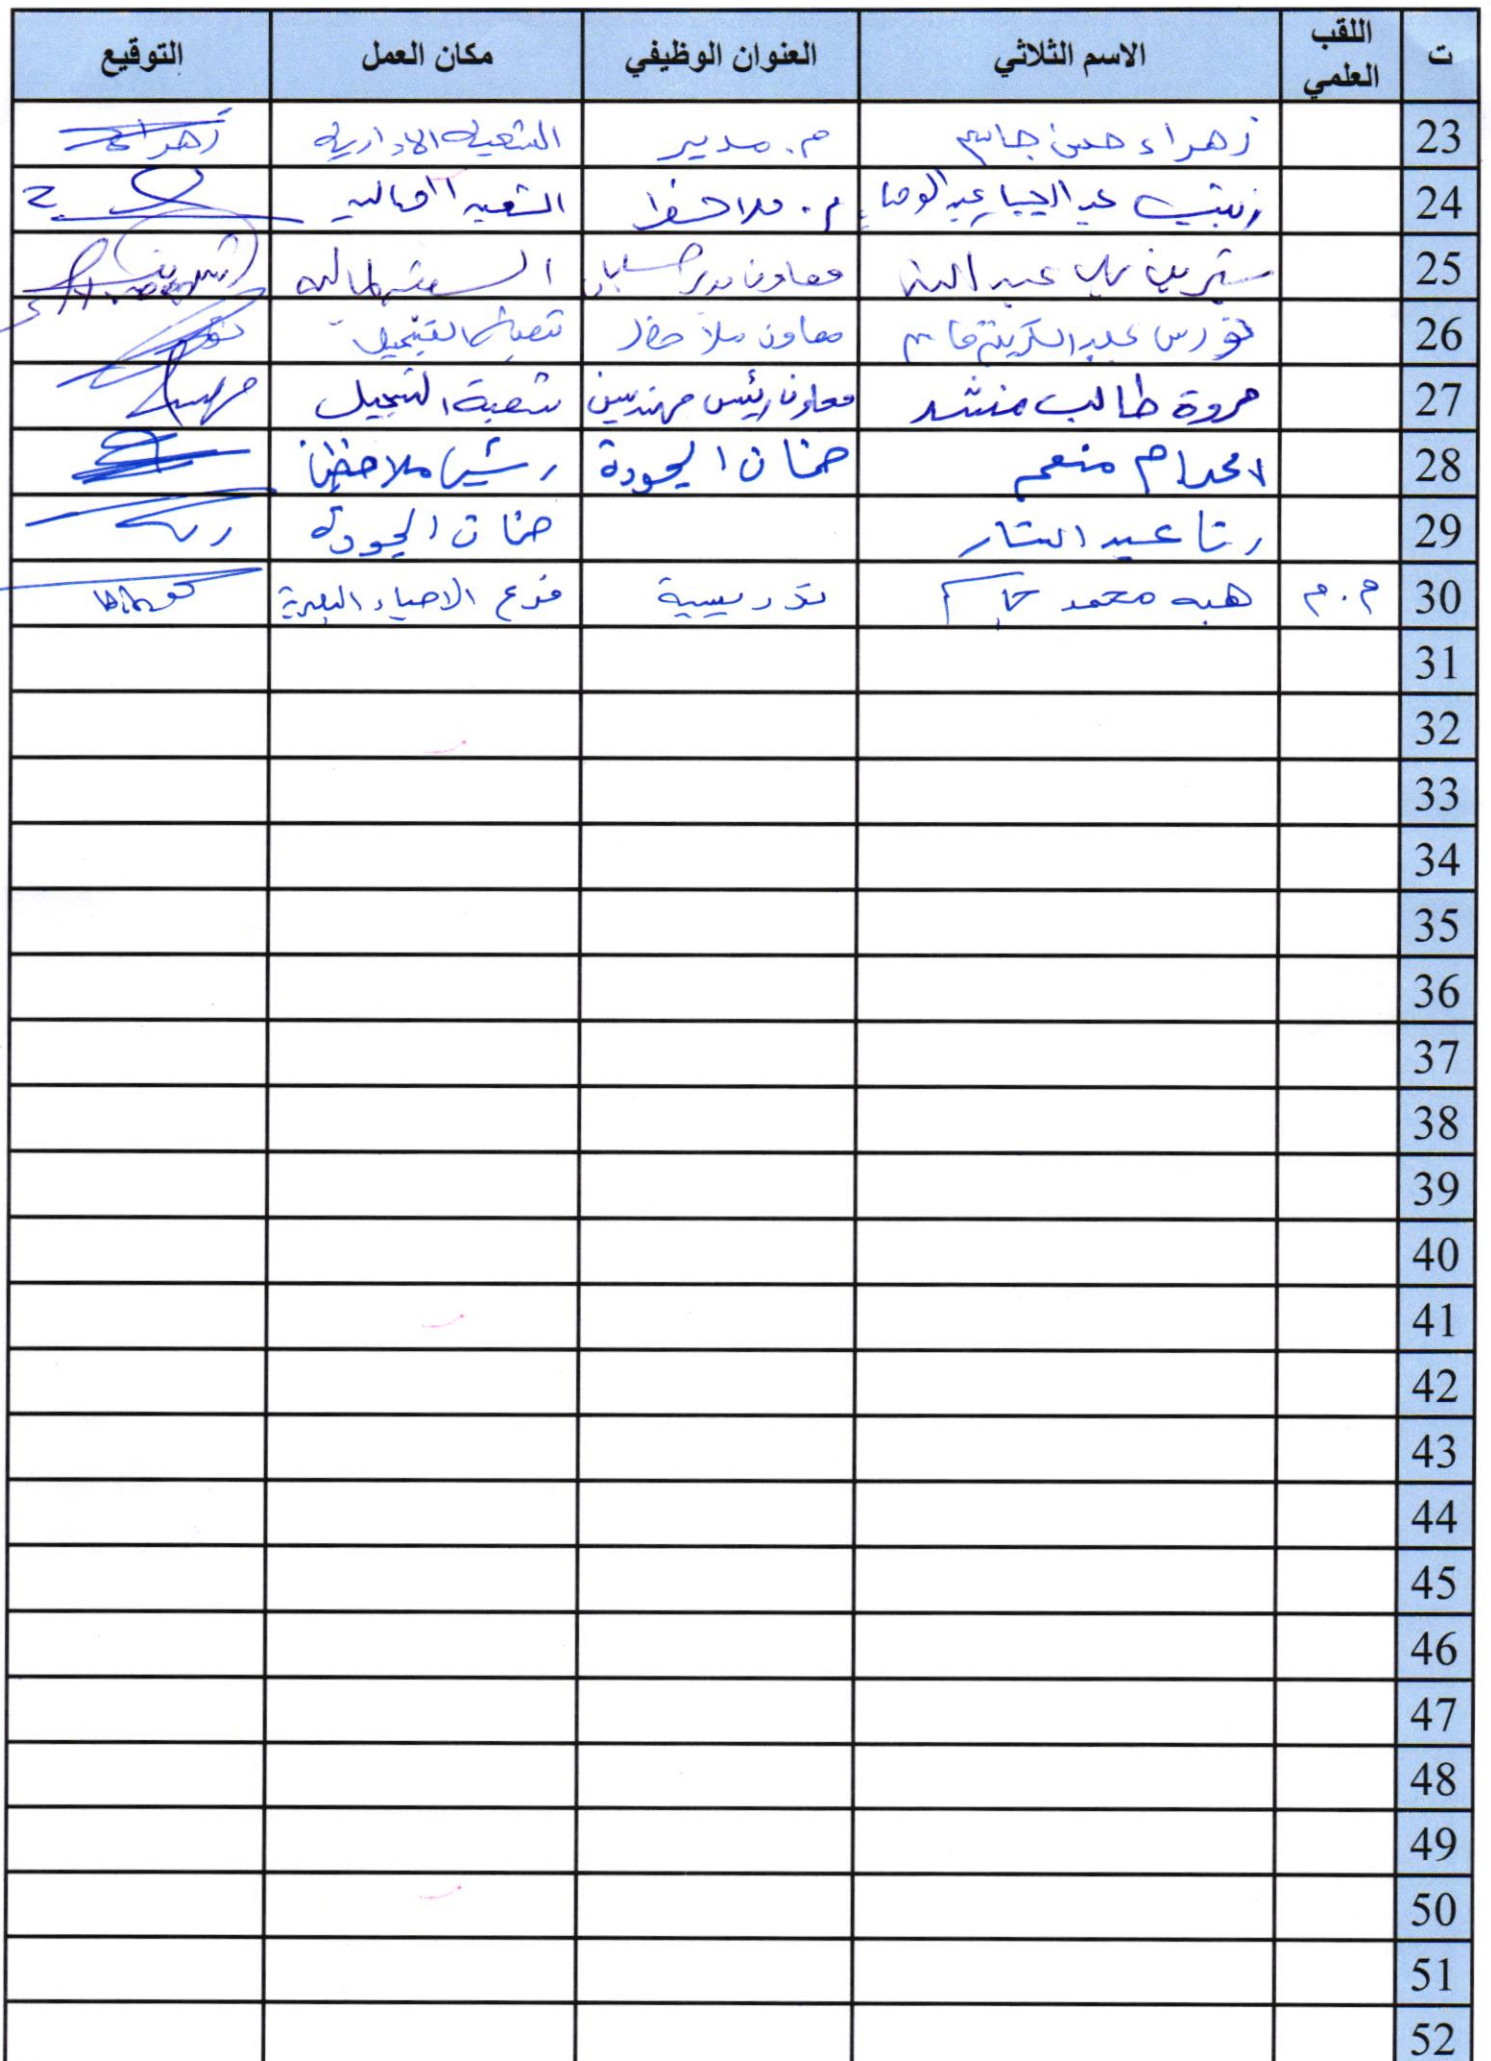 ت اللقب العلمي الاسم الثلاثي العنوان الوظيفي مكان العمل التوقيع
23 زهراء حسن جاسم م. مدير الشعبة الادارية زهراء
24 زينب عبد الوهاب م. ملاحظ الشعبة المالية
25 شيرين عبد معاون مدير حسابات الشعبة المالية شيرين
26 نورس عبد الكريم قاسم معاون ملاحظ شعبة التسجيل
27 مروة طالب منشد معاون رئيس مهندسين شعبة التسجيل
28 منعم ضمان الجودة ر. ملاحظين
29 رنا عبد الستار ضمان الجودة رنا
30 م.م هبه محمد تدريسية فرع الاحياء
31
32
33
34
35
36
37
38
39
40
41
42
43
44
45
46
47
48
49
50
51
52